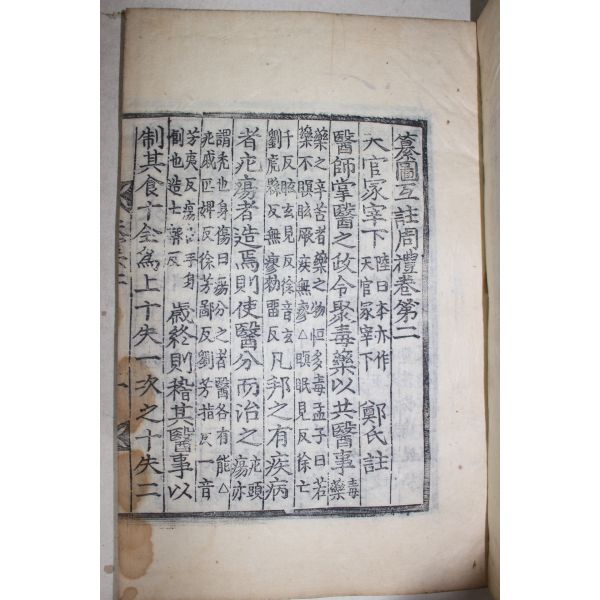 纂圖互註周禮卷第二
天官冢宰下 陸曰本亦作天官冢宰下 鄭氏註
醫師掌醫之政令聚毒藥以共醫事 毒藥
藥之辛苦者藥之物恒多毒孟子曰若
藥不瞑眩厥疾無瘳△瞑眠見反徐亡
千反眩玄見反徐音玄
劉虎縣反無瘳勑雷反 凡邦之有疾病
者疕瘍者造焉則使醫分而治之 疕頭瘍亦
謂禿也身傷曰瘍分之者醫各有能△
疕戚匹婢反徐芳鄙反劉芳指反一音
芳夷反瘍 手身
也造士 反 歲終則稽其醫事以
制其食十全爲上十失一次之十失二